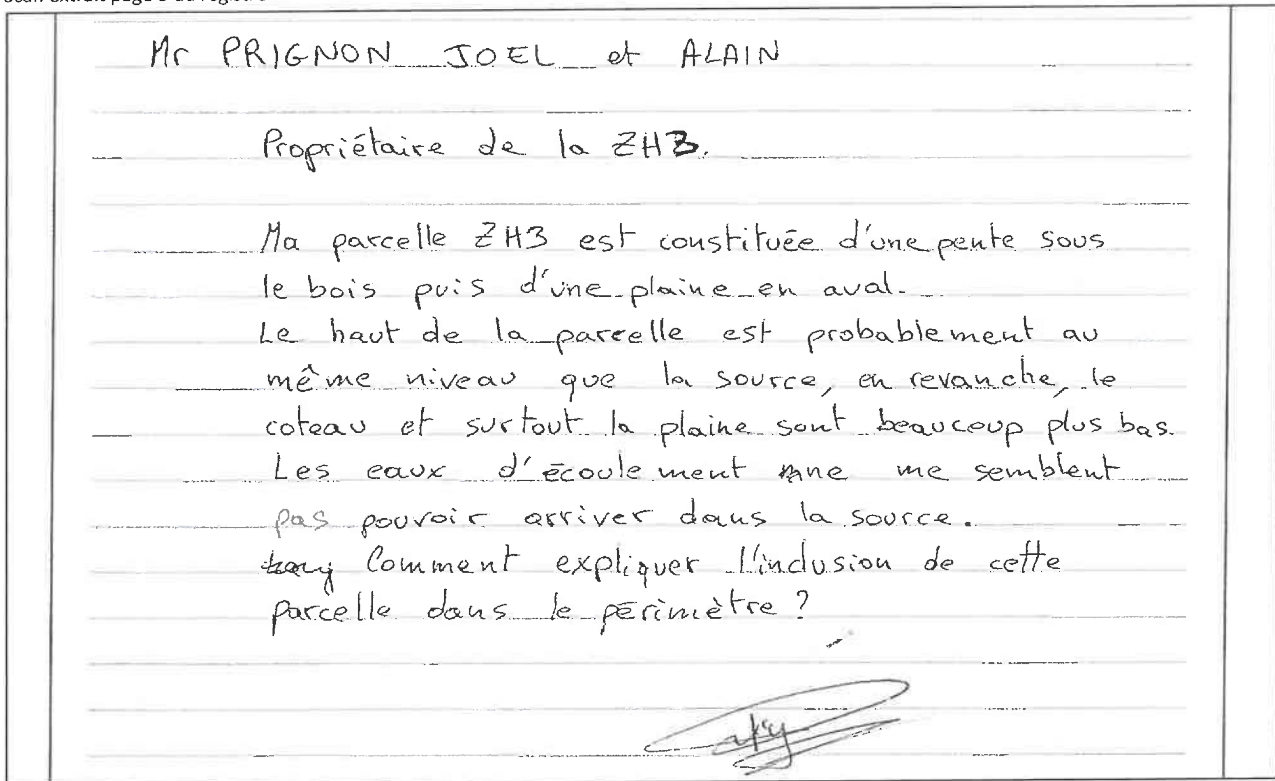 Mr PRIGNON JOEL et ALAIN
Propriétaire de la ZH3.
Ma parcelle ZH3 est constituée d'une pente sous
le bois puis d'une plaine en aval.
Le haut de la parcelle est probablement au
même niveau que la source, en revanche, le
coteau et surtout la plaine sont beaucoup plus bas.
Les eaux d'écoulement ne me semblent
pas pouvoir arriver dans la source.
Comment expliquer l'inclusion de cette
parcelle dans le périmètre ?